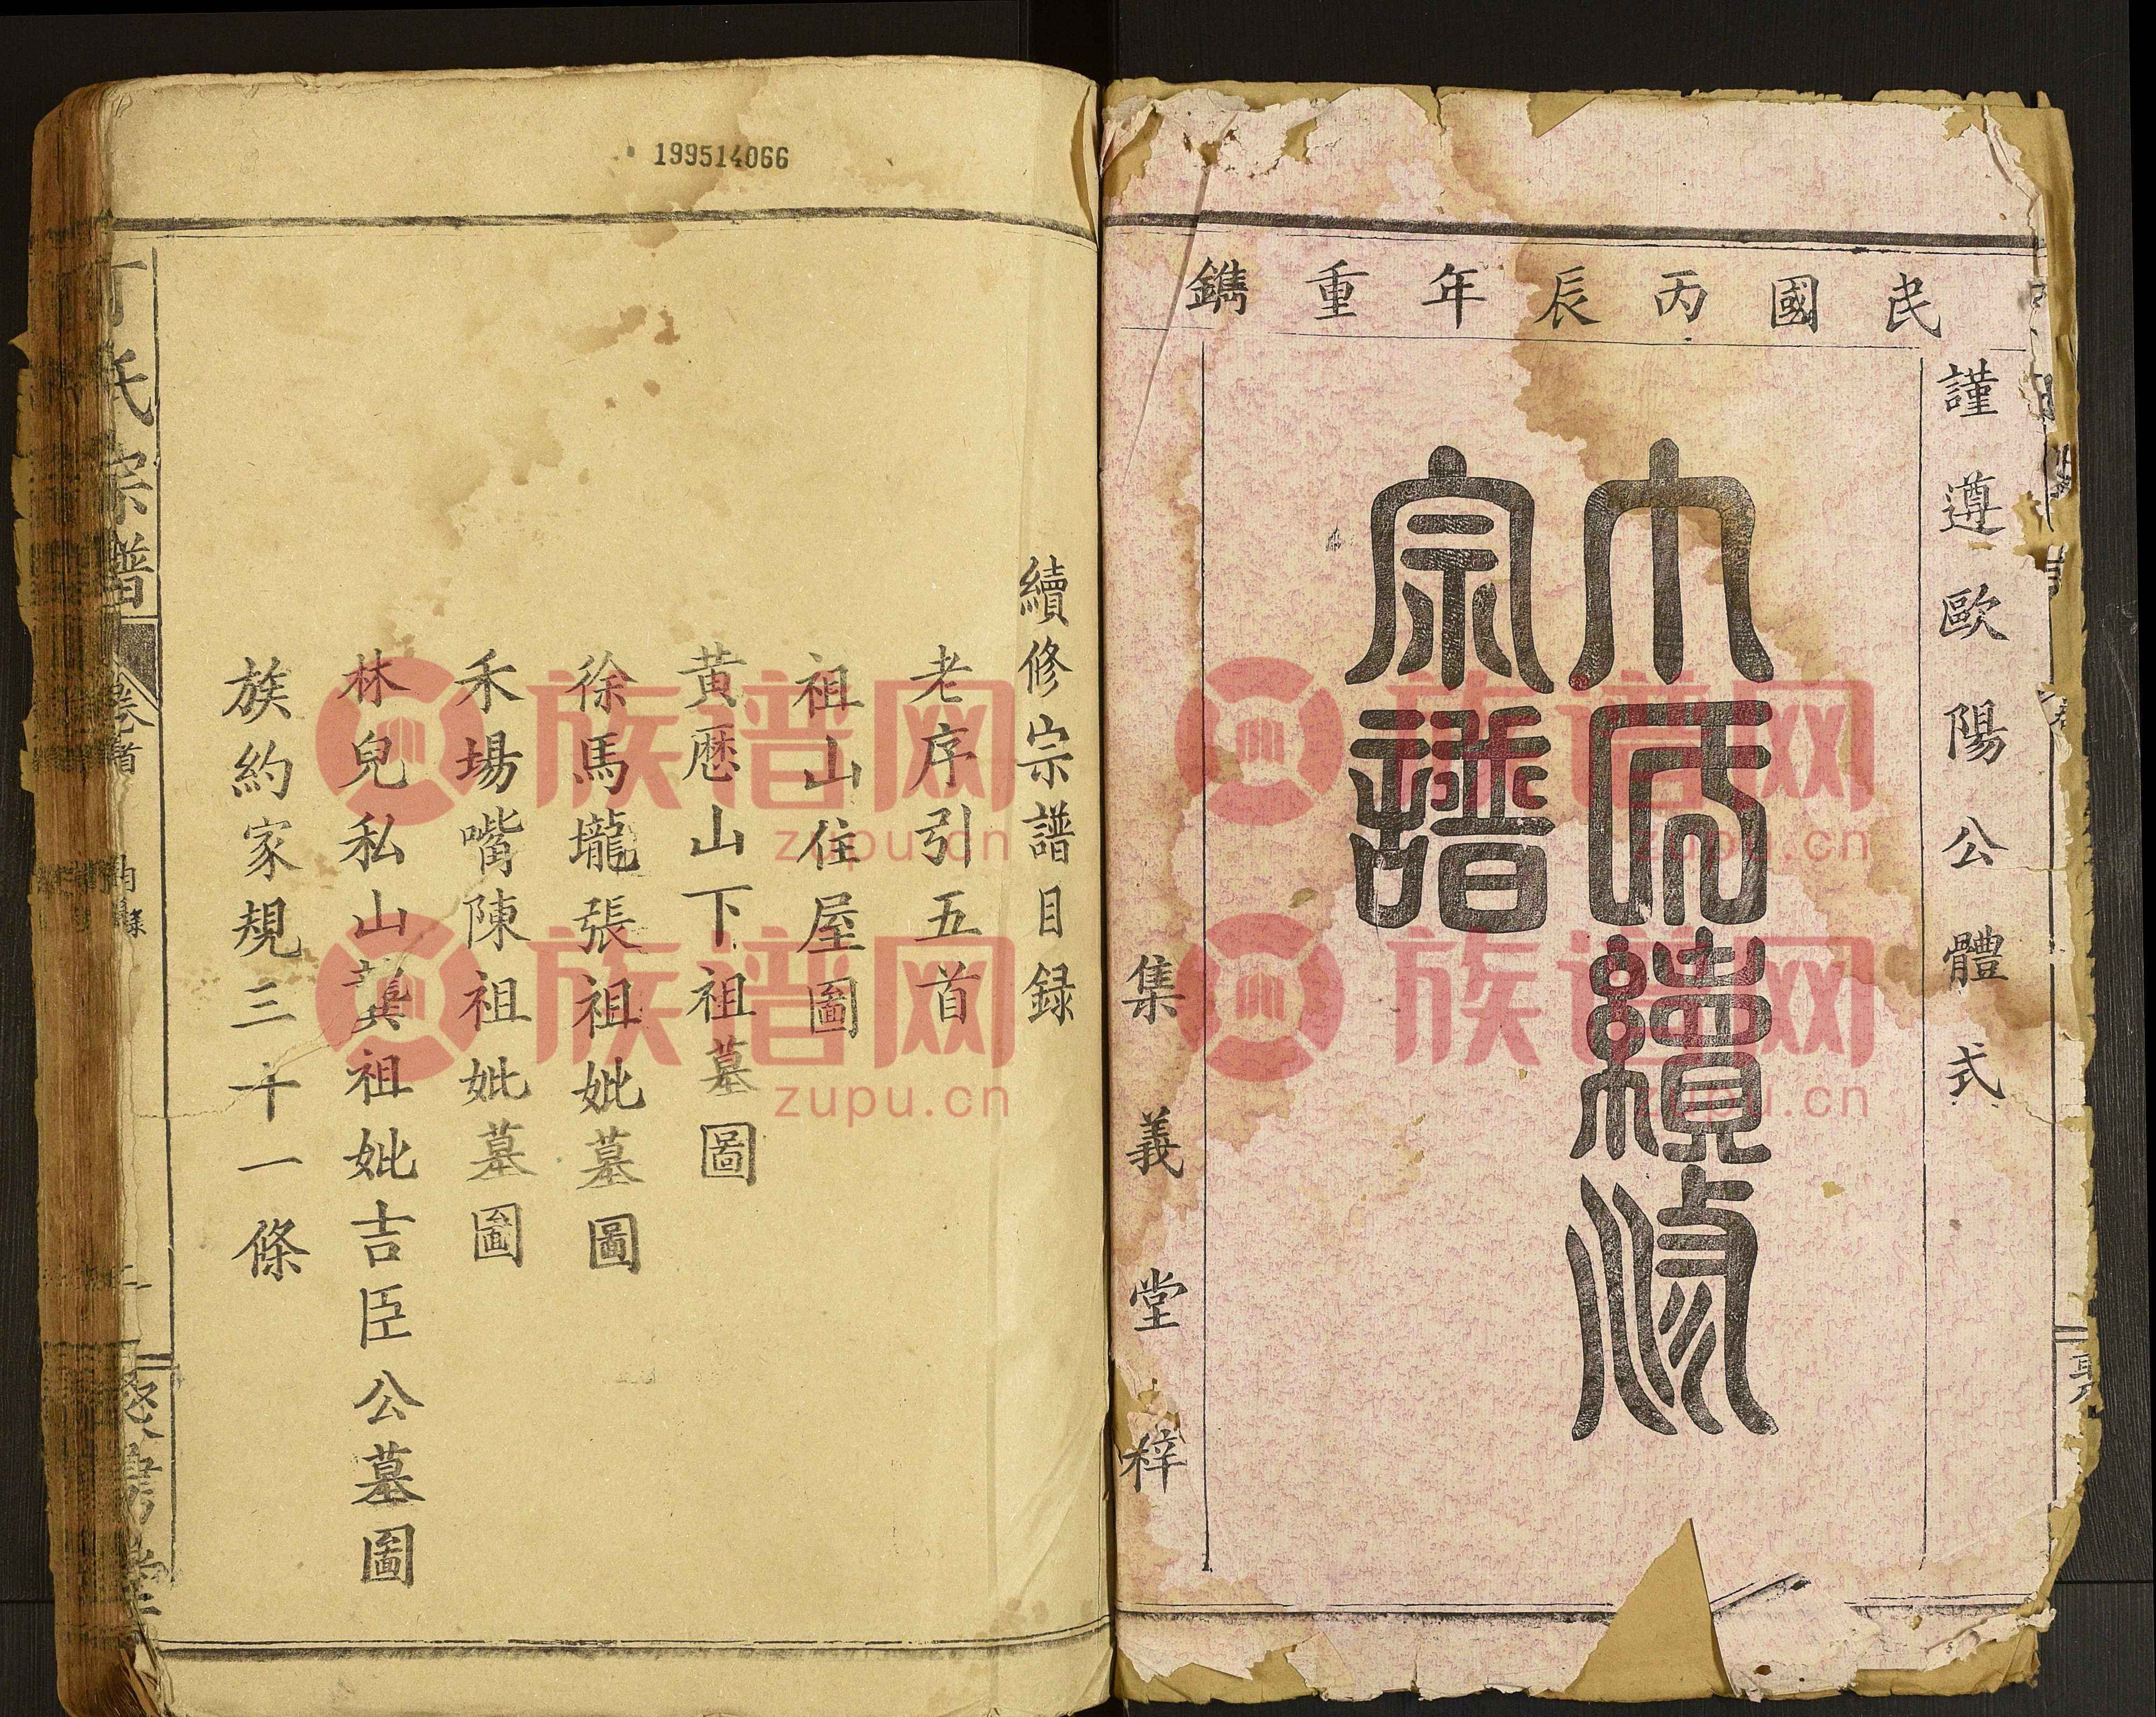 民國丙辰年重鐫
謹遵歐陽公體式
丁氏續修
宗譜
集義堂梓
199514066
續修宗譜目録
老序引五首
祖山住屋圖
黄厯山下祖墓圖
徐馬壠張祖妣墓圖
禾場嘴陳祖妣墓圖
林兒私山龔祖妣吉臣公墓圖
族約家規三十一條
丁氏宗譜
卷首
目錄
二
族谱网
zupu.cn
族谱网
zupu.cn
族谱网
zupu.cn
族谱网
zupu.cn